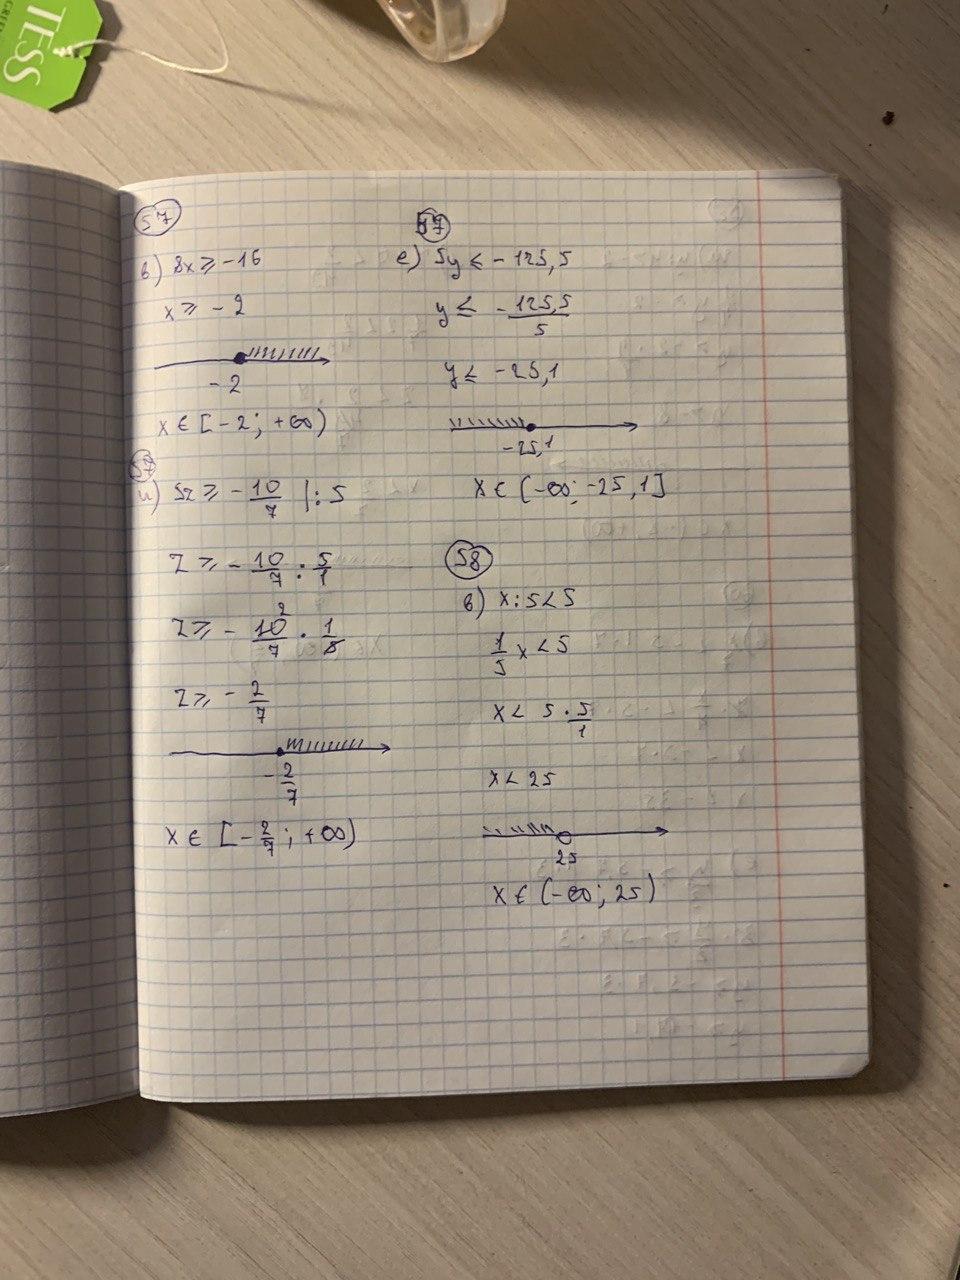 TESS
57
в) 8x ≥ -16
x ≥ -2
-2
x ∈ [-2; +∞)
57
и) 5z ≥ -10/7 |: 5
z ≥ -10/7 : 5/1
z ≥ -10/7 · 1/5
2
z ≥ -2/7
-2/7
x ∈ [-2/7; +∞)
57
е) 5y ≤ -125,5
y ≤ -125,5/5
y ≤ -25,1
-25,1
x ∈ (-∞; -25,1]
58
в) x : 5 < 5
1/5 x < 5
x < 5 · 5/1
x < 25
25
x ∈ (-∞; 25)